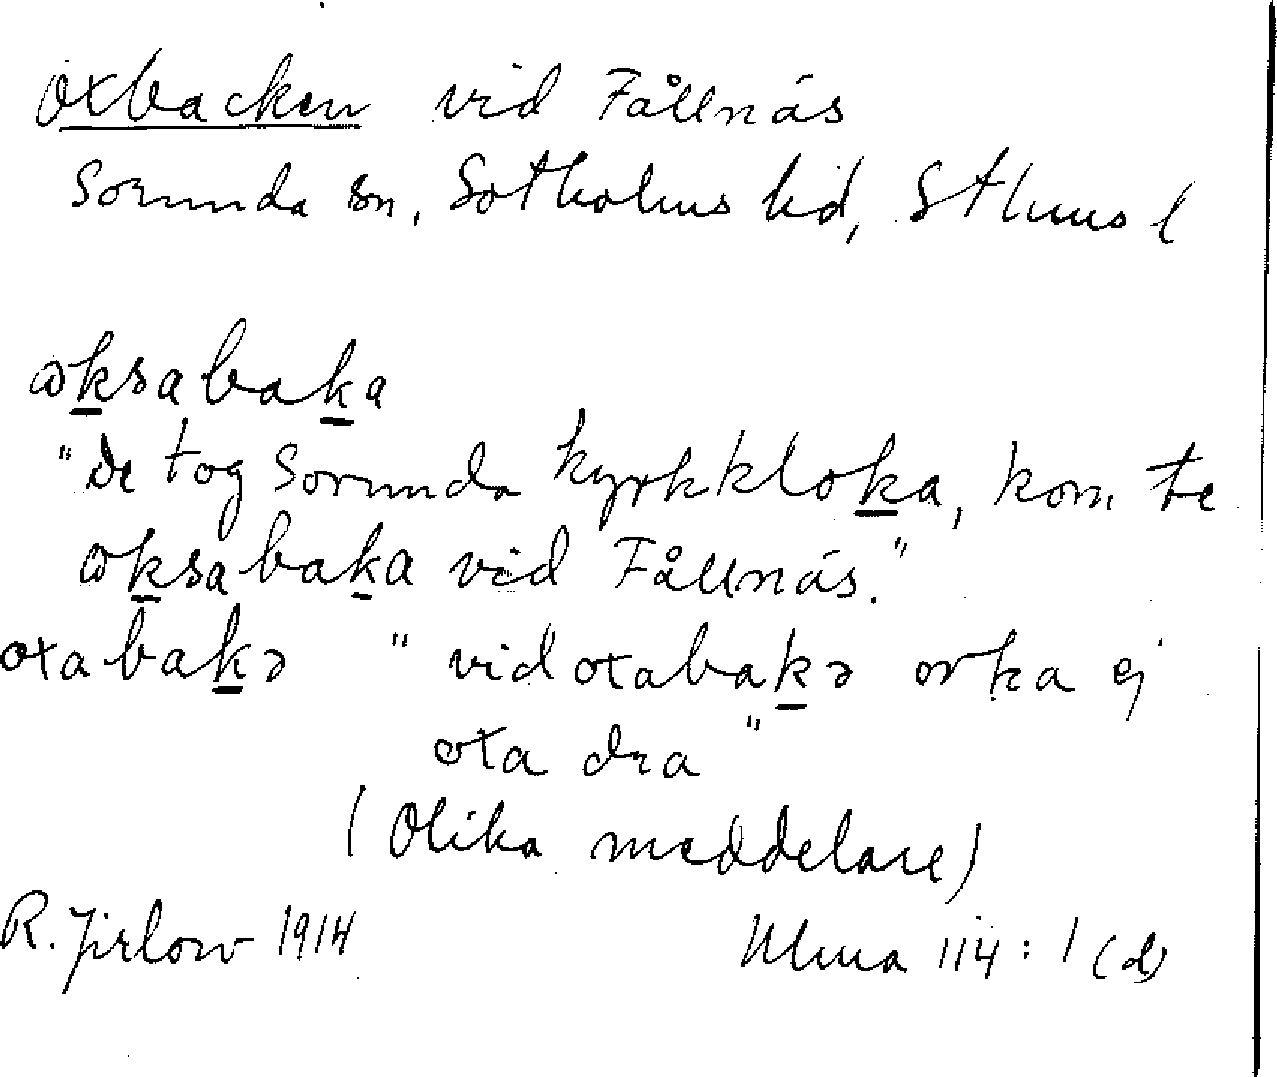 Oxbacken vid Fållnäs
Sorunda sn, Sotholms hd, Sthms l
ωksabaka
"De tog Sorunda kyrkkloka, kom te
ωksabaka vid Fållnäs."
oxabakə "vid oxabakə orka ej
oxa dra"
(Olika meddelare)
R. Jirlow 1914 Ulma 114:1 (d)